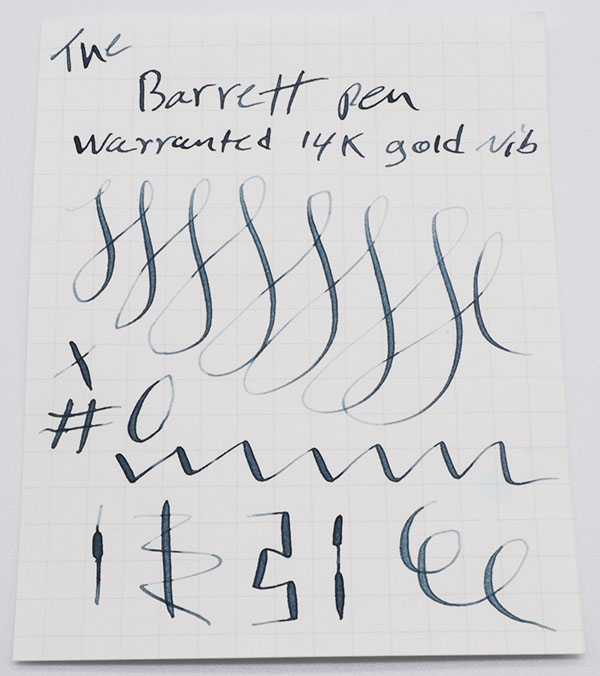 The
Barrett pen
Warranted 14K gold Nib
x
# 0